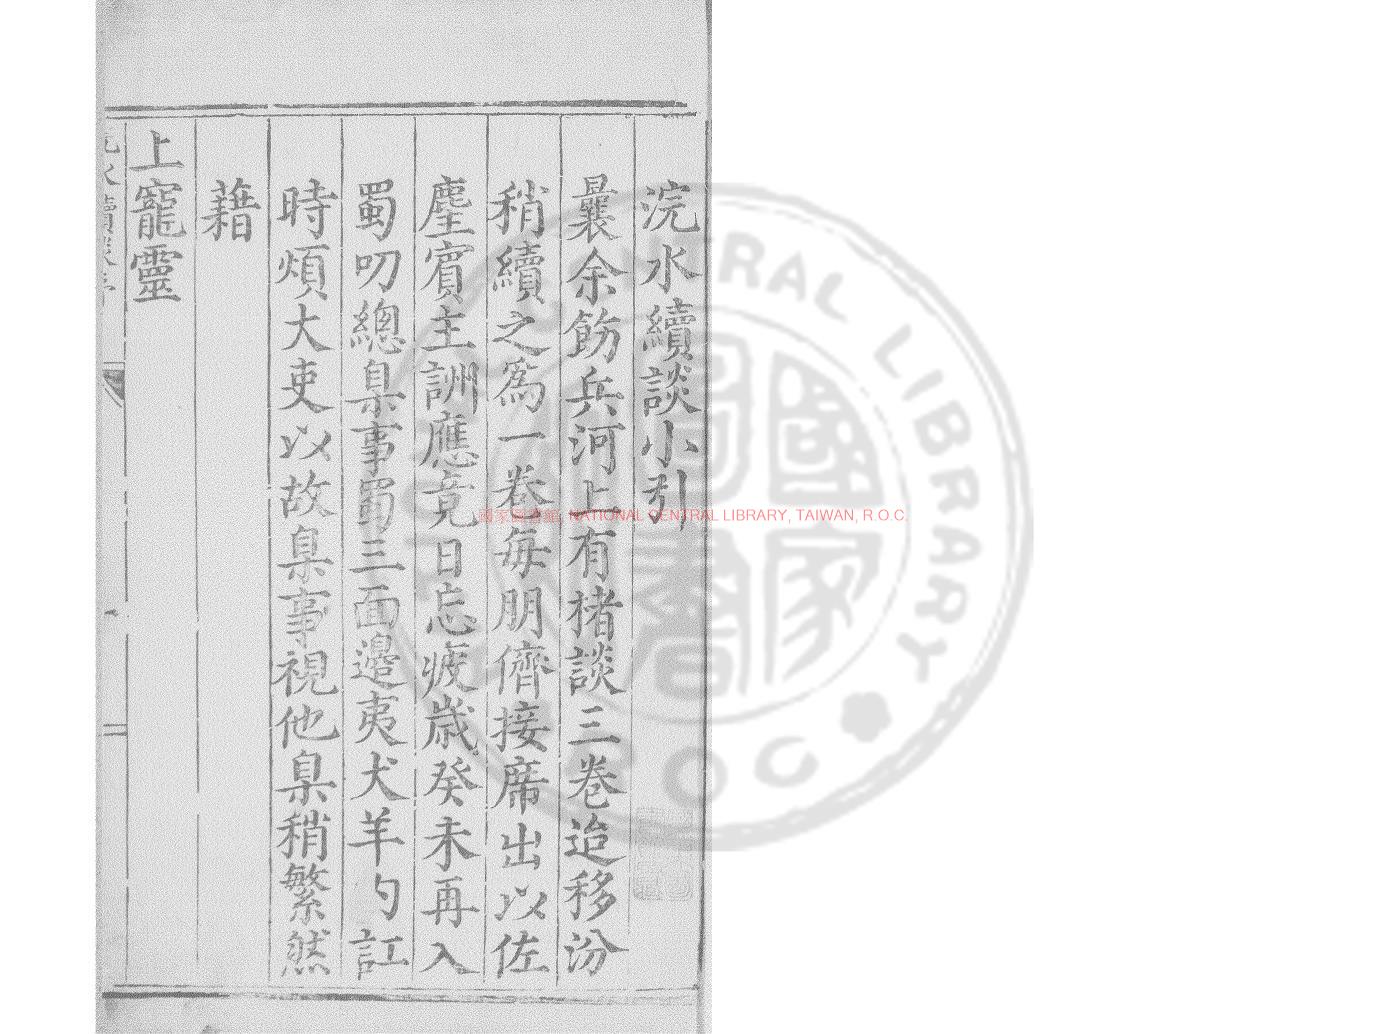 浣水續談小引
曩余飭兵河上有楮談三卷迨移汾
稍續之爲一卷每朋儕接席出以佐
麈賓主詶應竟日忘疲歲癸未再入
蜀叨總臬事蜀三面邊夷犬羊勺訌
時煩大吏以故臬事視他臬稍繁然
藉
上寵靈
國家圖書館, NATIONAL CENTRAL LIBRARY, TAIWAN, R.O.C.
CENTRAL LIBRARY
R.O.C.
國家圖書